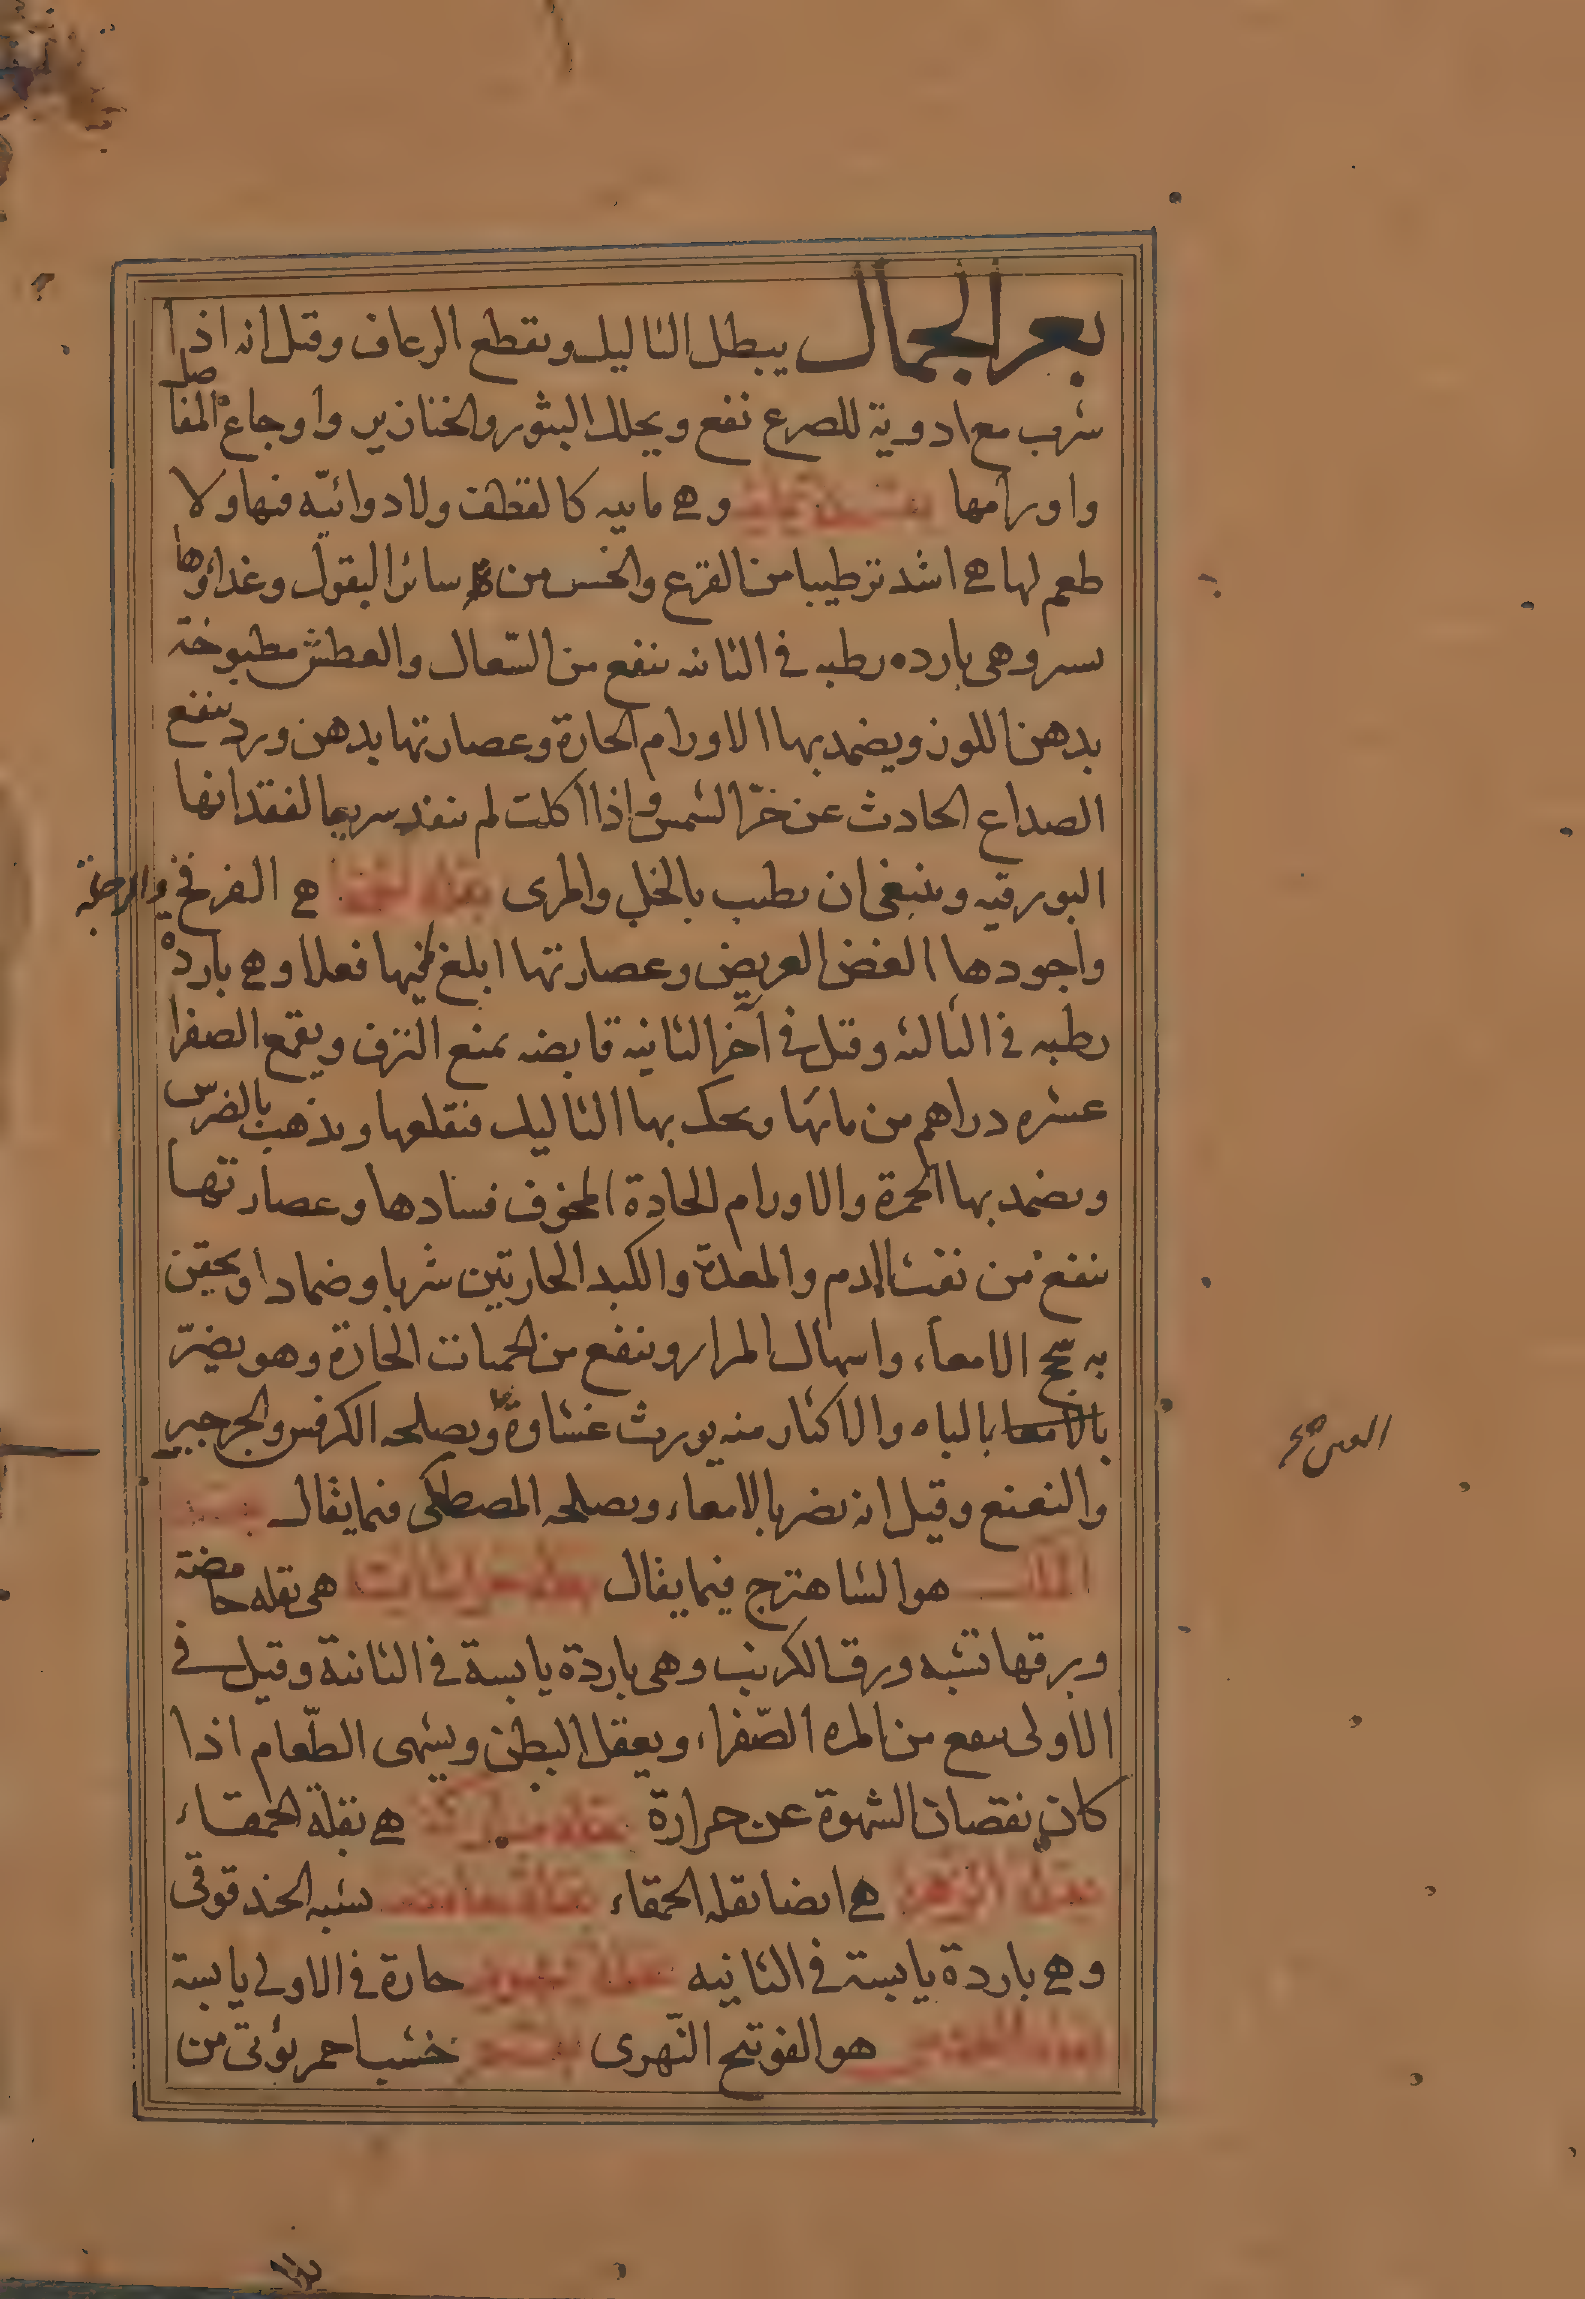 بعر الجمال يبطل الثاليل ويقطع الرعاف وقيل انه اذا
شرب مع ادوية للصرع نفع ويحلل البثور والخنازير واوجاع المفاصل
واورامها بقلة يمانية وهى مايية كالقطف ولا دوائيّة فيها ولا
طعم لها هى اشد ترطيبا من القرع والخس من سائر البقول وغذاؤها
يسير وهى بارده رطبه فى الثانيه ينفع من السّعال والعطش مطبوخة
بدهن اللوز ويضمد بها الاورام الحارة وعصارتها بدهن ورد ينفع
الصداع الحادث عن حرّ الشمس واذا اكلت لم تنفد سريعا لفقدانها
البورقيه وينبغى ان يطيب بالخل والمرى بقلة الحمقا هى الفرفخ والرجلة
واجودها الغض العريض وعصارتها ابلغ فيها فعلا وهى بارده
رطبه فى الثالثه وقيل فى آخر الثانيه قابضه يمنع النزف ويقمع الصفرا
عشره دراهم من مائها ويحك بها الثاليل فتقلعها ويذهب بالضرس
ويضمد بها الحمرة والاورام الحادة المخوف فسادها وعصارتها
ينفع من نفث الدم والمعدة والكبد الحارتين شربا وضمادا ويحقن
به سحج الامعاء واسهال المرار وينفع من الحميات الحارة وهو يضرّ
بالامعا بالباه والاكثار منه يورث غشاوة ويصلحه الكرفس والجرجير
والنعنع وقيل انه يضر بالامعاء ويصلحه المصطكى فيما يقال بقلة
الملك هو الشاهترج فيما يقال بقلة خراسانية هى بقله حامضة
وبرقها تشبه ورق الكرنب وهى باردة يابسة فى الثانية وقيل فى
الاولى ينفع من المره الصّفراء ويعقل البطن ويشهى الطّعام اذا
كان نقصان الشهوة عن حرارة بقلة مباركة هى بقلة الحمقاء
بقلة الزهرا هى ايضا بقله الحمقاء بقلة حامضه يشبه الحندقوقى
وهى باردة يابسة فى الثانيه بقلة حارة فى الاولى يابسة
هو الفوتنج النّهرى بقم خشب احمر يؤتى من